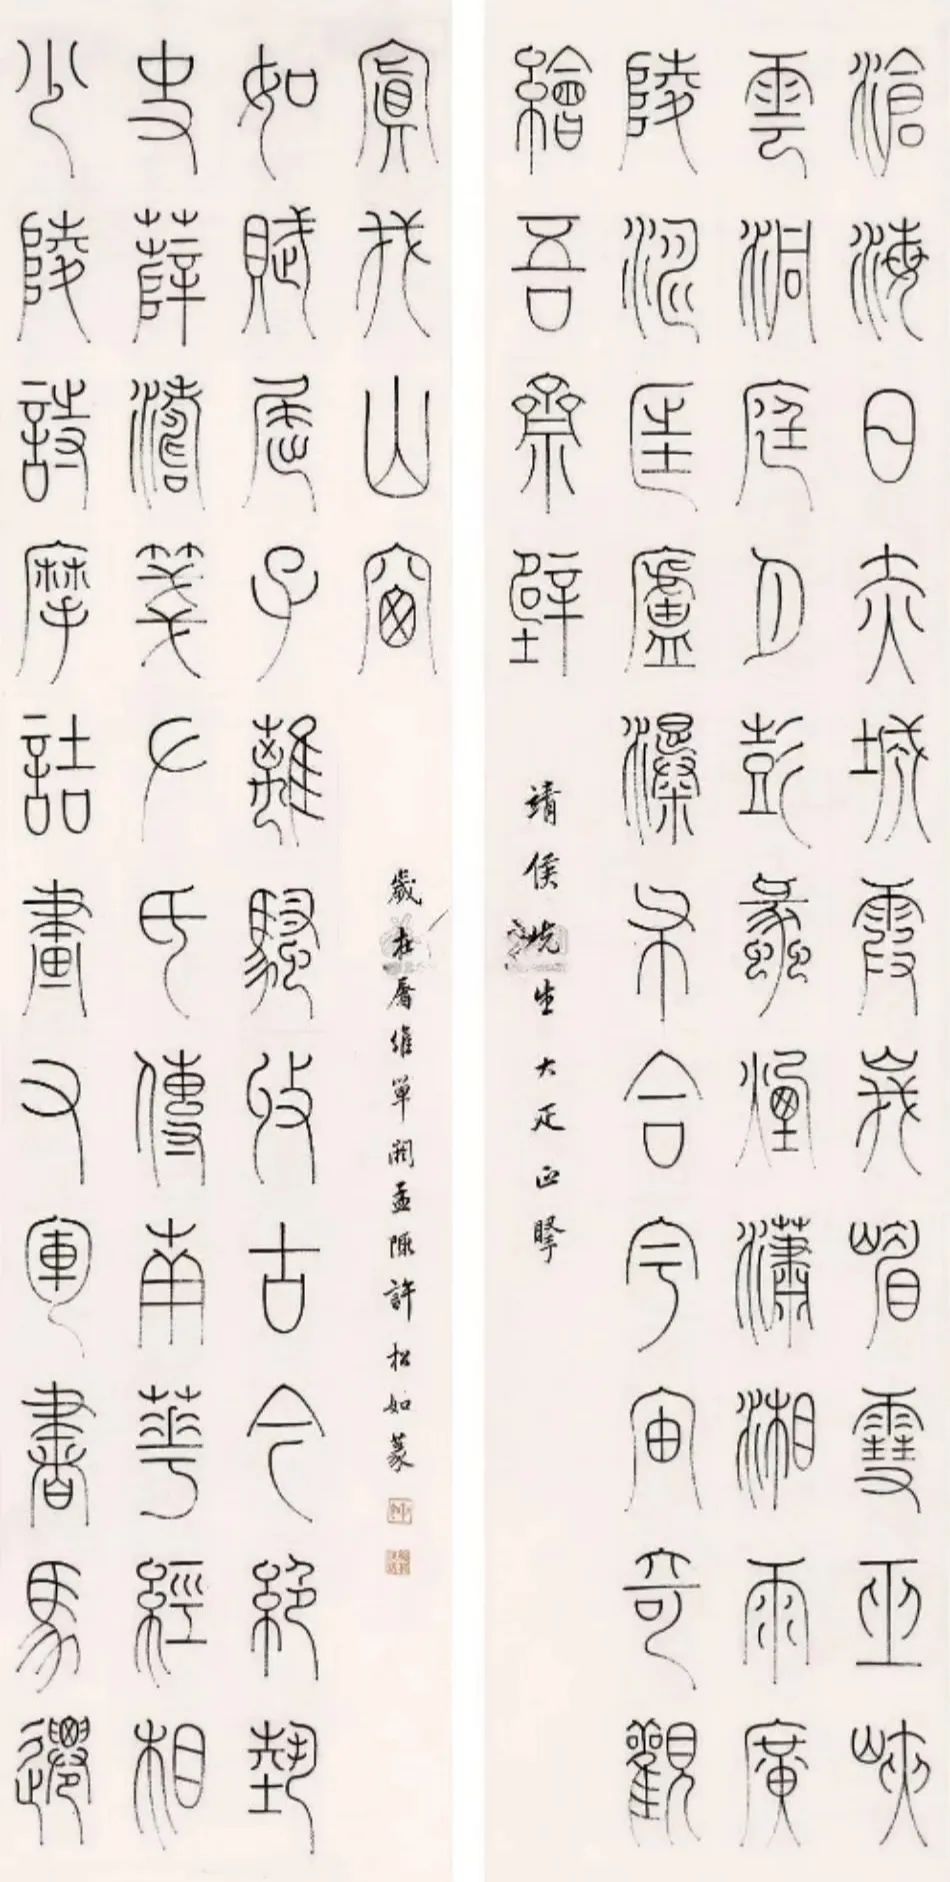 滄海日赤城霞峩嵋雪巫峽
雲洞庭月彭蠡煙瀟湘雨廣
陵潮匡廬瀑布合宇宙奇觀
繪吾齋壁
靖侯先生大疋正掔
少陵詩摩詰畫右軍書馬遷
史薛濤箋左氏傳南華經相
如賦屈子離騷收古今絕埶
寘我山窗
歲在屠維單閼孟陬許松如篆